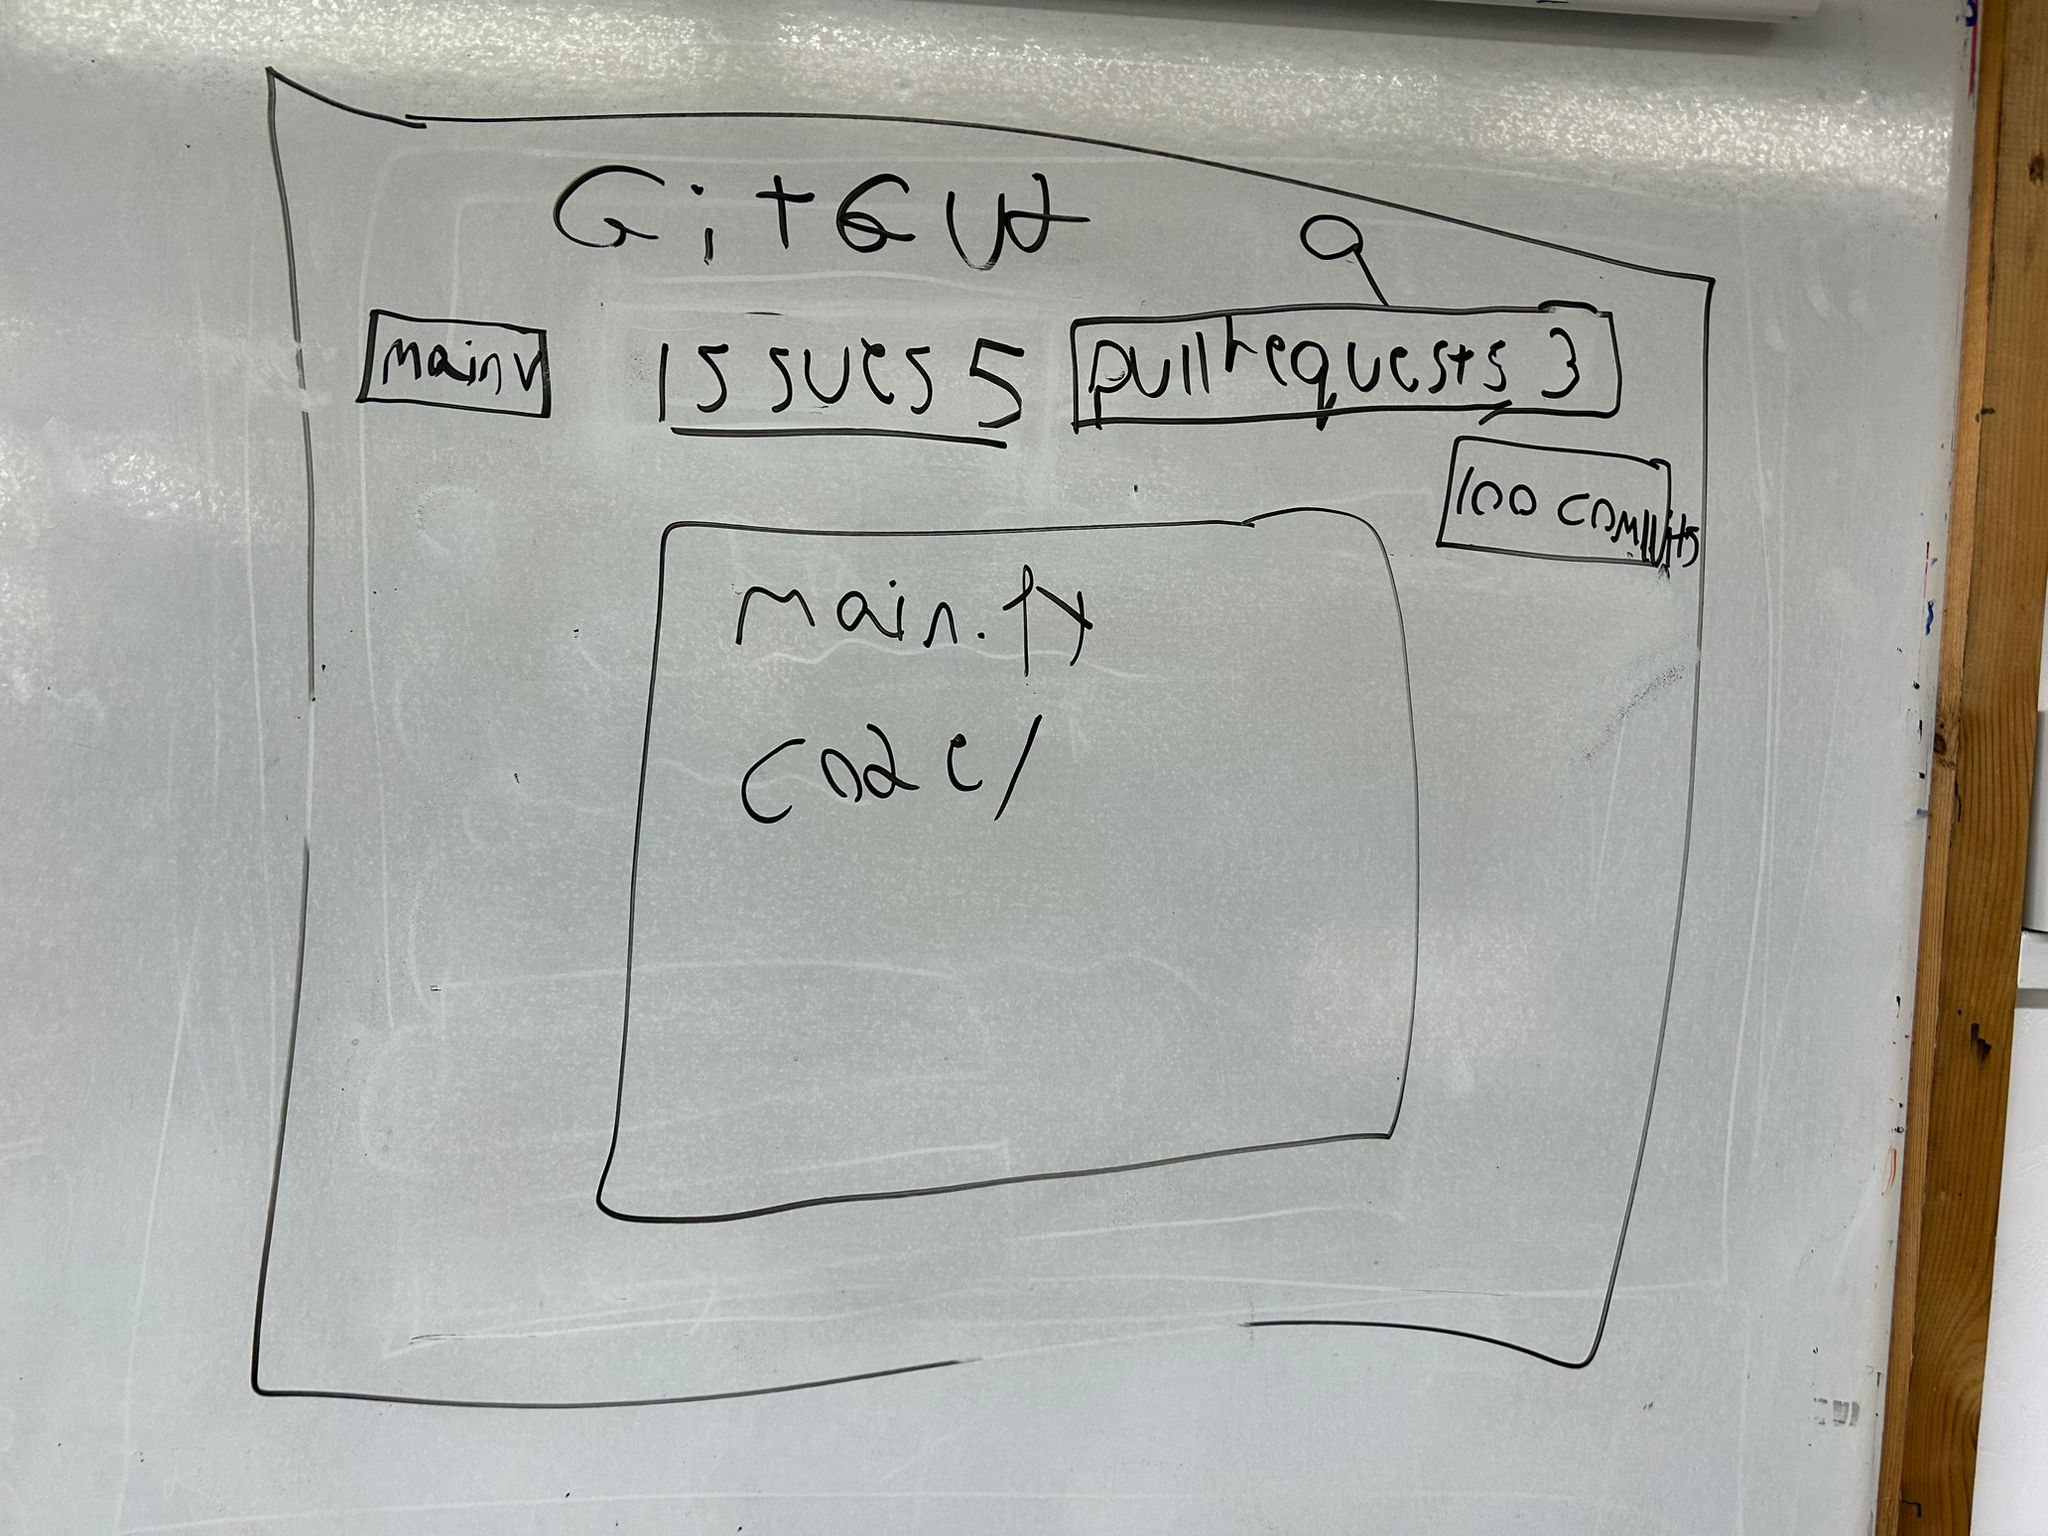 GitGud
main v
Issues 5
pull requests 3
100 commits
main.py
code/